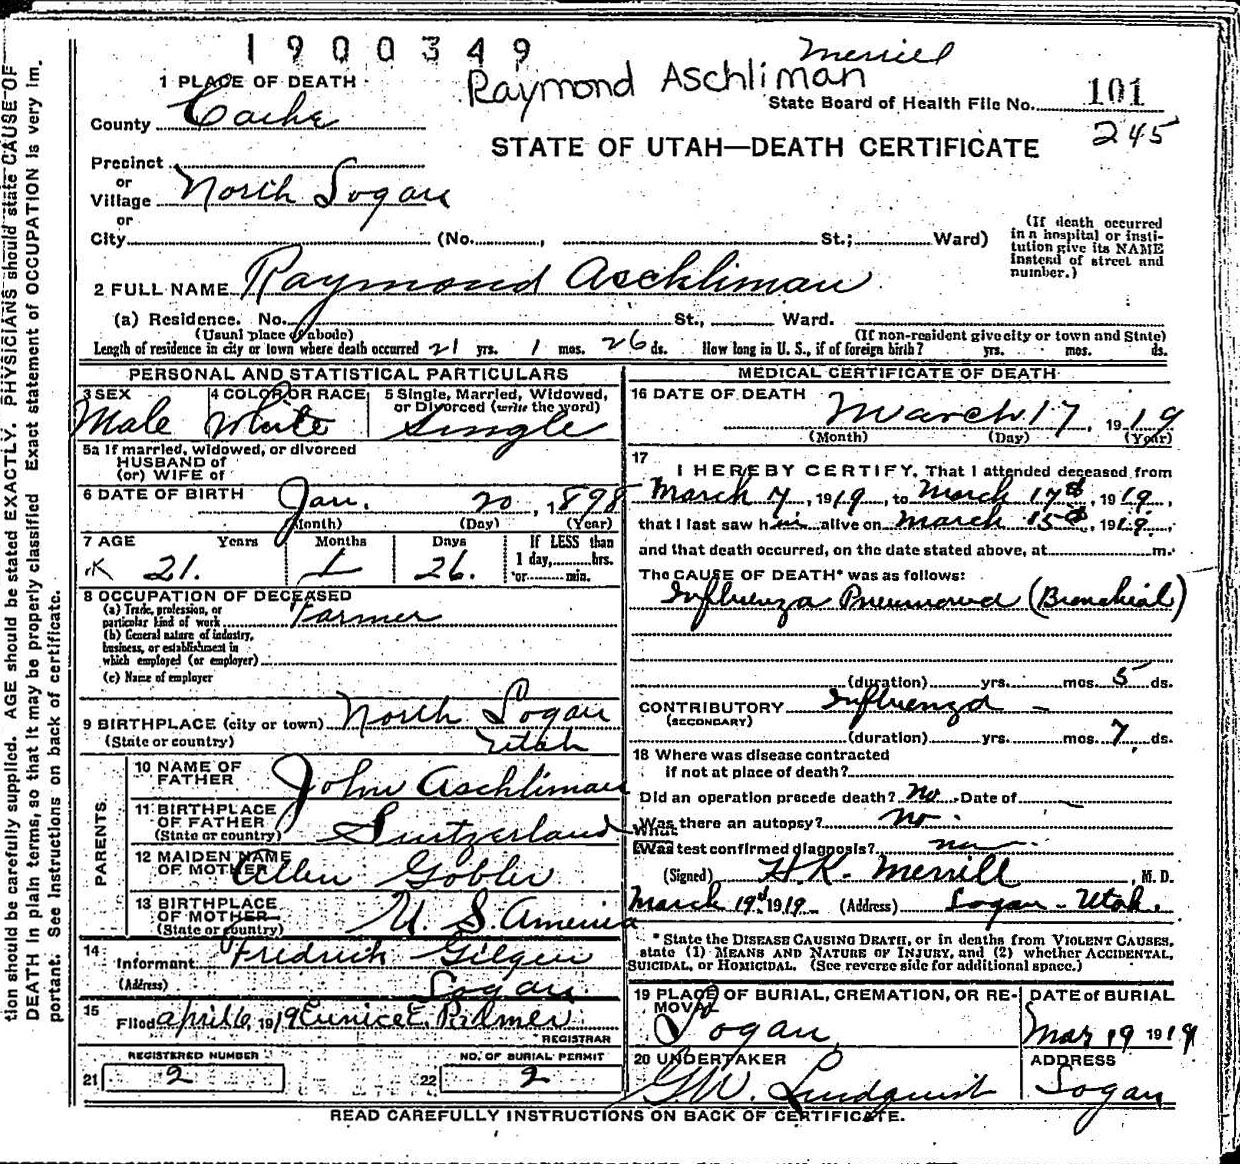 1900349
Merrill
Raymond Aschliman
1 PLACE OF DEATH
State Board of Health File No. 101
County Cache
245
STATE OF UTAH—DEATH CERTIFICATE
Precinct
or
Village North Logan
or
City (No. , St.; Ward)
(If death occurred
in a hospital or insti-
tution give its NAME
instead of street and
number.)
2 FULL NAME Raymond Aschliman
(a) Residence. No. St., Ward.
(Usual place of abode) (If non-resident give city or town and State)
Length of residence in city or town where death occurred 21 yrs. 1 mos. 26 ds. How long in U. S., if of foreign birth? yrs. mos. ds.
PERSONAL AND STATISTICAL PARTICULARS
3 SEX
Male
4 COLOR OR RACE
White
5 Single, Married, Widowed,
or Divorced (write the word)
Single
5a If married, widowed, or divorced
HUSBAND of
(or) WIFE of
6 DATE OF BIRTH Jan. 20, 1898
(Month) (Day) (Year)
7 AGE Years Months Days If LESS than
1 day, hrs.
or min.
21. 1 26.
8 OCCUPATION OF DECEASED
(a) Trade, profession, or
particular kind of work Farmer
(b) General nature of industry,
business, or establishment in
which employed (or employer)
(c) Name of employer
9 BIRTHPLACE (city or town) North Logan
(State or country) Utah
PARENTS.
10 NAME OF
FATHER John Aschliman
11 BIRTHPLACE
OF FATHER
(State or country) Switzerland
12 MAIDEN NAME
OF MOTHER Allen Gobler
13 BIRTHPLACE
OF MOTHER
(State or country) U. S. America
14
Informant Fredrick Gilgen
(Address) Logan.
15
Filed April 6, 1919 Eunice E. Palmer
REGISTRAR
REGISTERED NUMBER
21 2
NO. OF BURIAL PERMIT
22 2
MEDICAL CERTIFICATE OF DEATH
16 DATE OF DEATH
March 17, 1919
(Month) (Day) (Year)
17
I HEREBY CERTIFY, That I attended deceased from
March 7, 1919, to March 17th, 1919,
that I last saw him alive on March 15th, 1919,
and that death occurred, on the date stated above, at m.
The CAUSE OF DEATH* was as follows:
Influenza Pneumonia (Bronchial)
(duration) yrs. mos. 5 ds.
CONTRIBUTORY Influenza
(SECONDARY)
(duration) yrs. mos. 7 ds.
18 Where was disease contracted
if not at place of death?
Did an operation precede death? No Date of
Was there an autopsy? No.
What
Was test confirmed diagnosis? no
(Signed) H.K. Merrill, M. D.
March 19d 1919 (Address) Logan - Utah.
*State the DISEASE CAUSING DEATH, or in deaths from VIOLENT CAUSES,
state (1) MEANS AND NATURE OF INJURY, and (2) whether ACCIDENTAL,
SUICIDAL, or HOMICIDAL. (See reverse side for additional space.)
19 PLACE OF BURIAL, CREMATION, OR RE-
MOVAL
Logan
DATE of BURIAL
Mar 19 1919
20 UNDERTAKER
G.W. Lindquist
ADDRESS
Logan
READ CAREFULLY INSTRUCTIONS ON BACK OF CERTIFICATE.
tion should be carefully supplied. AGE should be stated EXACTLY. PHYSICIANS should state CAUSE OF
DEATH in plain terms, so that it may be properly classified. Exact statement of OCCUPATION is very im-
portant. See instructions on back of certificate.